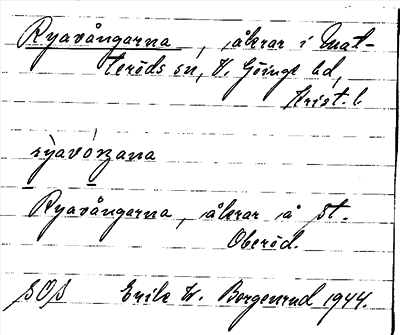 Ryavångarna, åkrar i Mat-
teröds sn, V. Göinge hd,
Krist. l.
Ryavångarna, åkrar å St.
Oberöd.
SOS Erik W. Borgenrud 1944.